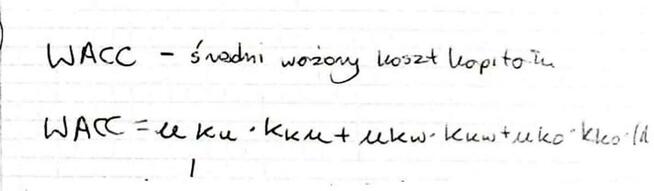 WACC - średni ważony koszt kapitału
WACC = uku · kku + ukw · kkw + uko · kko · (1